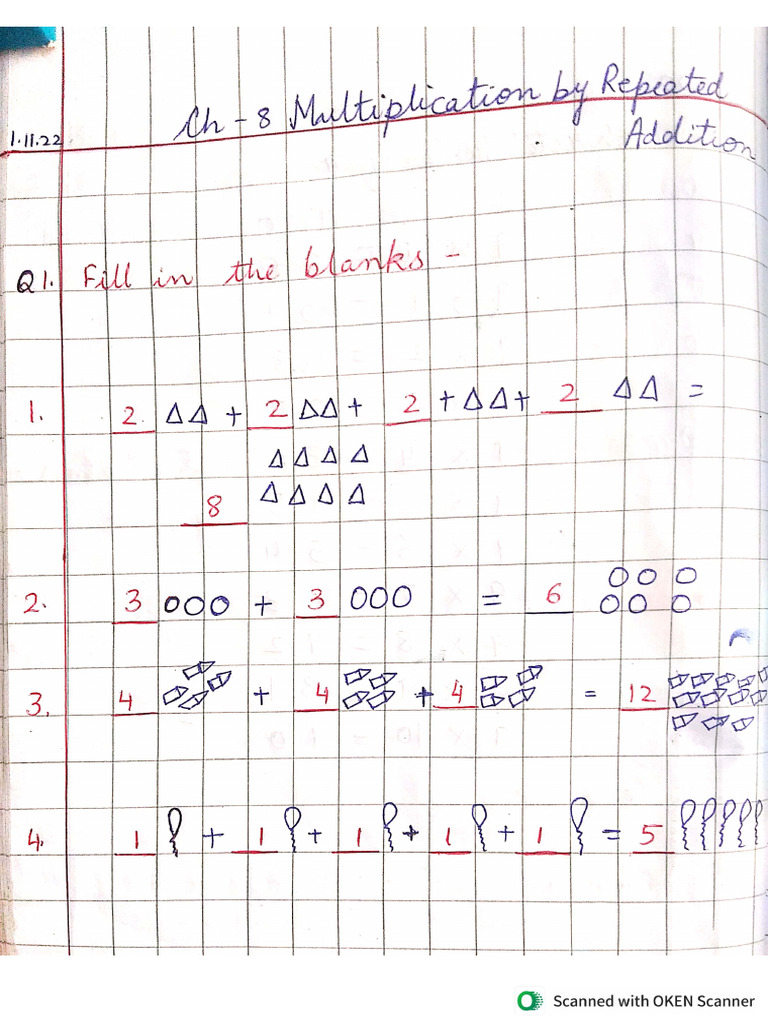 Ch - 8 Multiplication by Repeated
1.11.22 Addition
Q1. Fill in the blanks -
1. 2 ΔΔ + 2 ΔΔ + 2 + ΔΔ + 2 ΔΔ =
ΔΔΔΔ
8 ΔΔΔΔ
2. 3 OOO + 3 OOO = 6 OOO
OOO
3. 4 + 4 + 4 = 12
4. 1 + 1 + 1 + 1 + 1 = 5
Scanned with OKEN Scanner